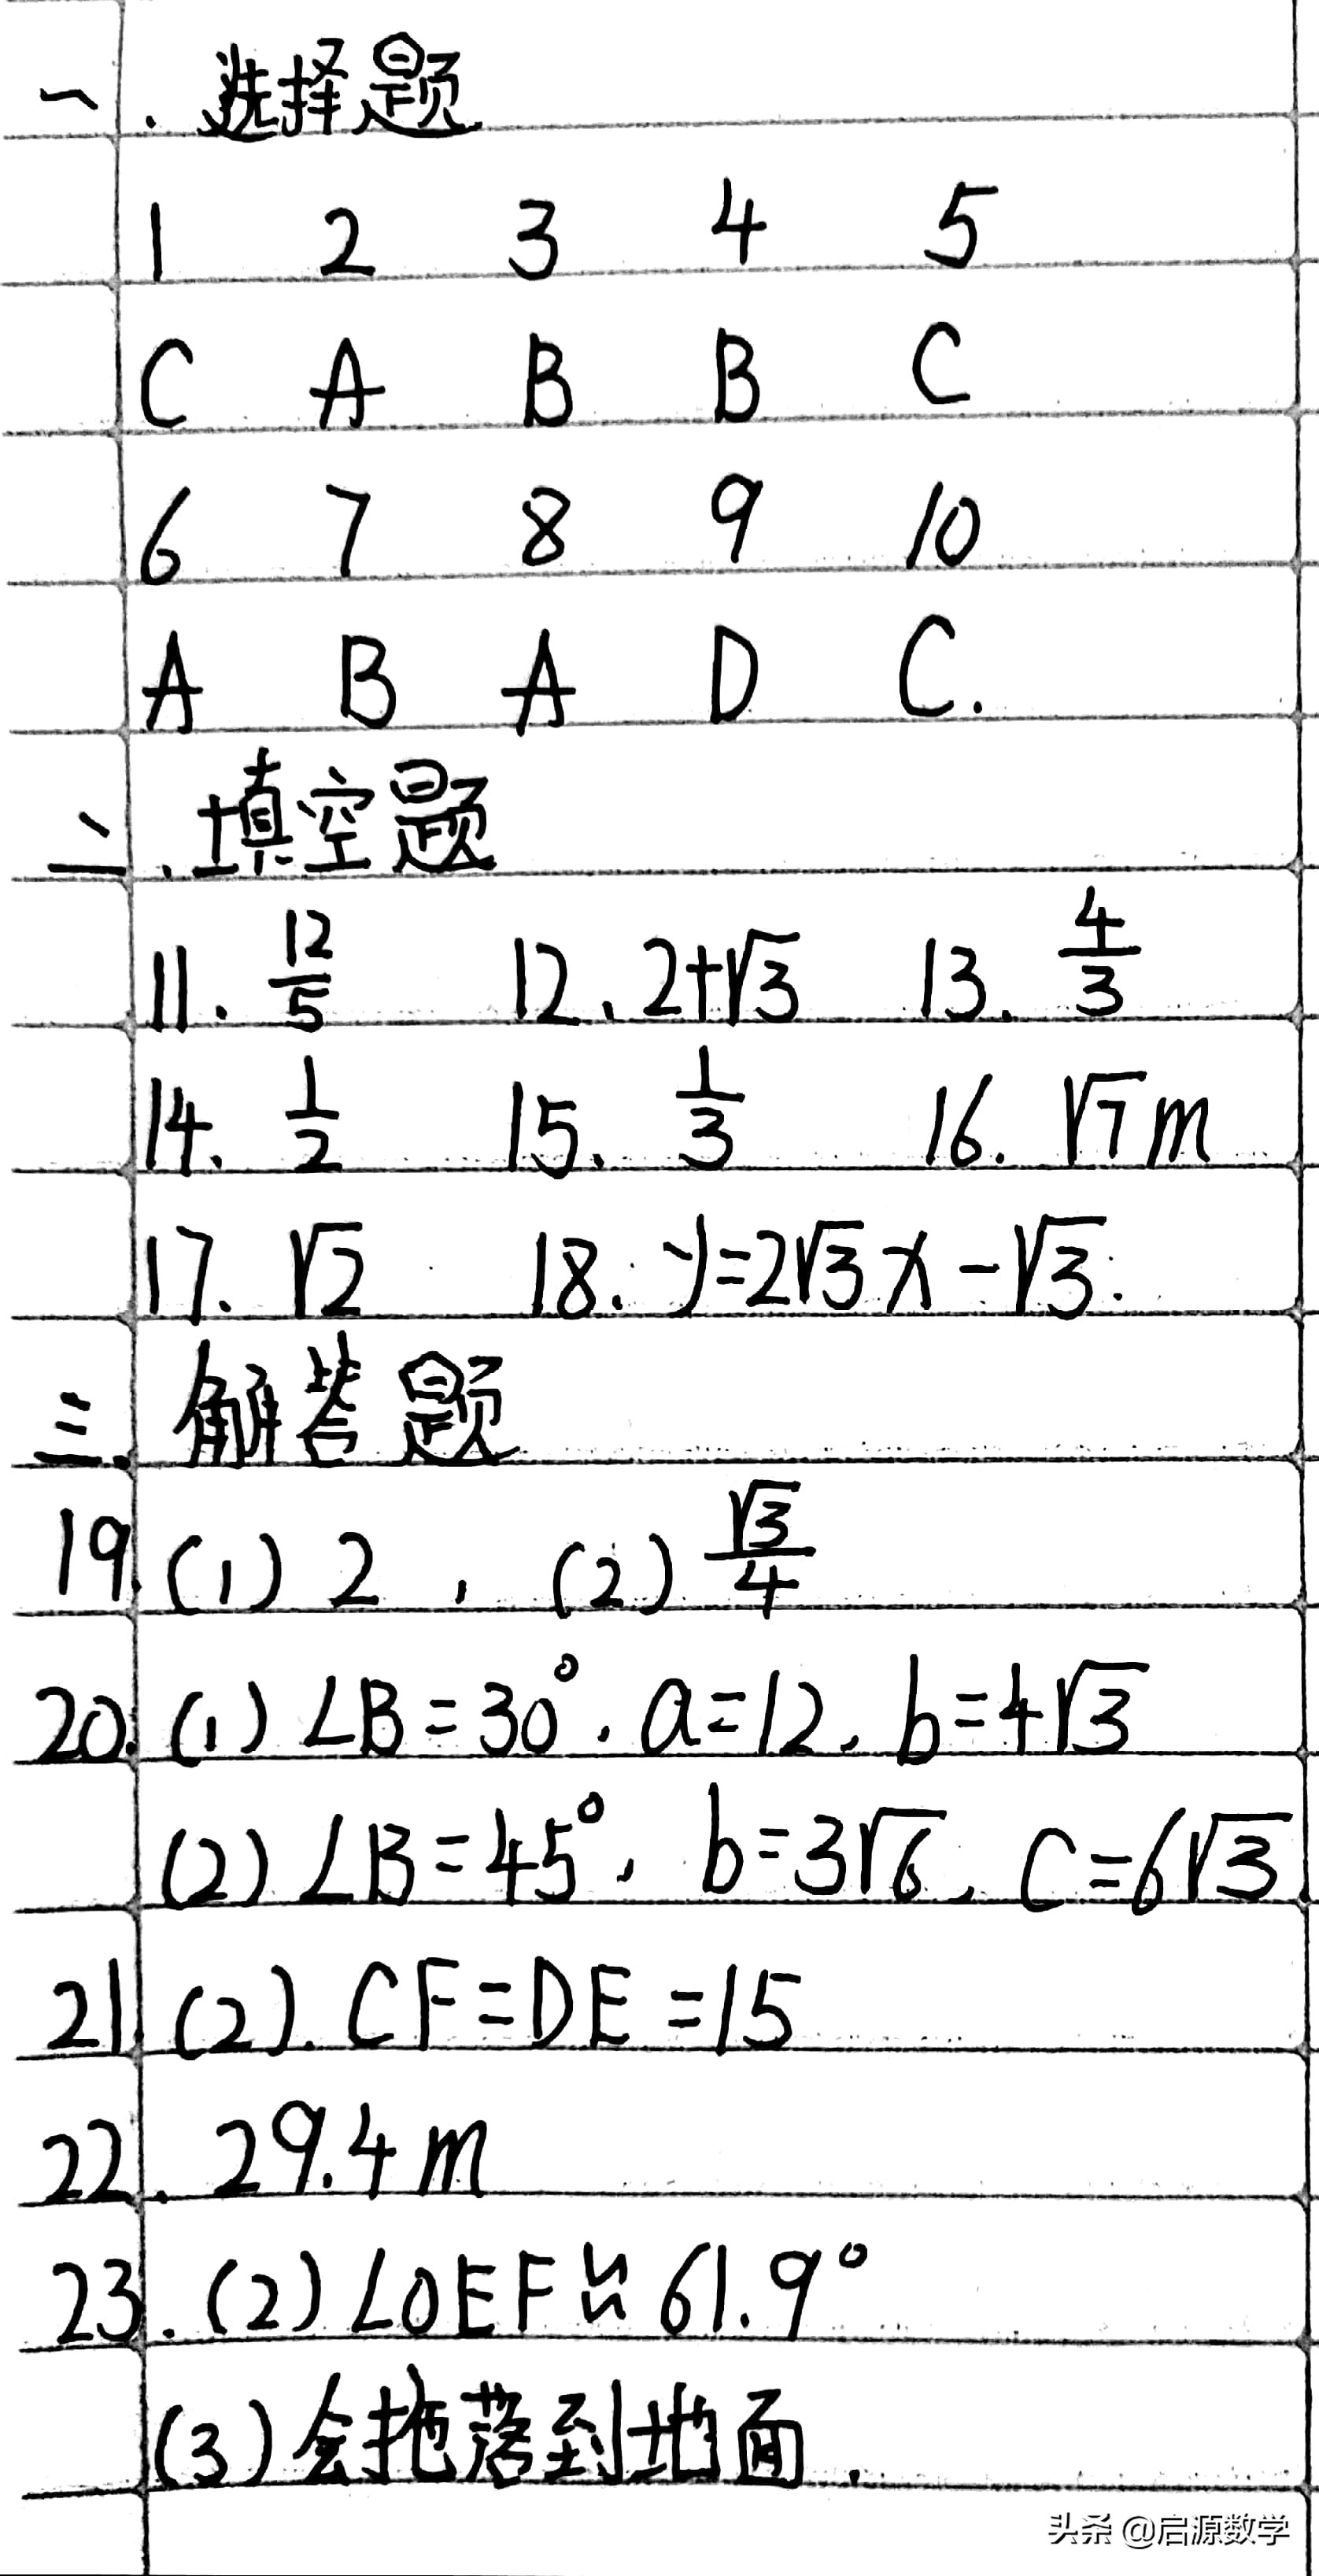 一. 选择题
1 2 3 4 5
C A B B C
6 7 8 9 10
A B A D C.
二. 填空题
11. 12/5 12. 2+√3 13. 4/3
14. 1/2 15. 1/3 16. √7 m
17. √2 18. y=2√3x-√3.
三. 解答题
19. (1) 2 , (2) √3/4
20. (1) ∠B=30°. a=12. b=4√3
(2) ∠B=45°, b=3√6, C=6√3
21. (2). CF=DE=15
22. 29.4m
23. (2) ∠OEF≈61.9°
(3) 会拖落到地面.
头条 @启源数学